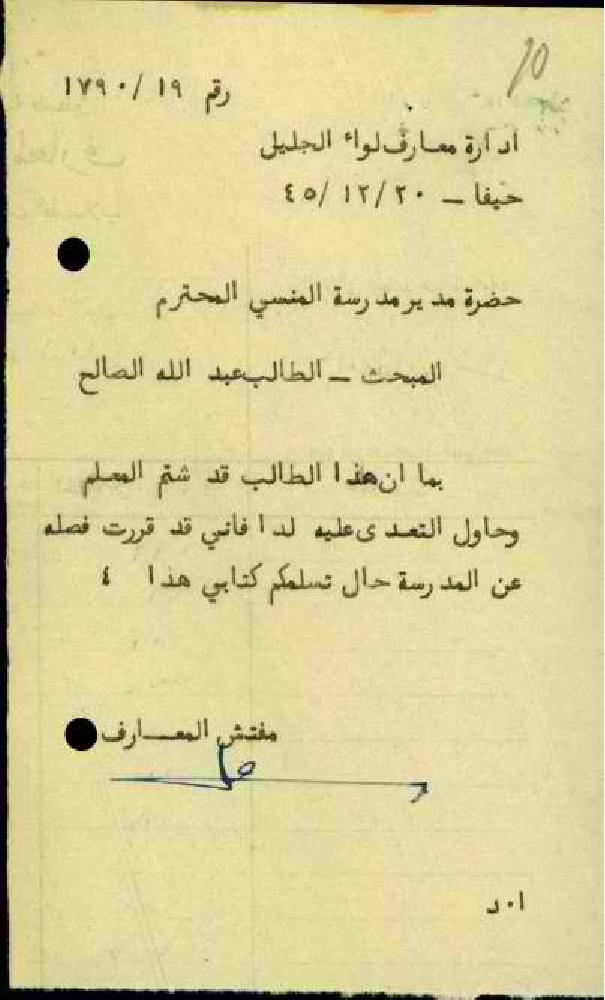 10
رقم ١٩ /١٧٩٠
ادارة معارف لواء الجليل
حيفا – ٢٠ /١٢ /٤٥
حضرة مدير مدرسة المنسي المحترم
المبحث – الطالب عبد الله الصالح
بما ان هذا الطالب قد شتم المعلم
وحاول التعدى عليه لذا فاني قد قررت فصله
عن المدرسة حال تسلمكم كتابي هذا ٤
مفتش المعـــارف
ا٠د